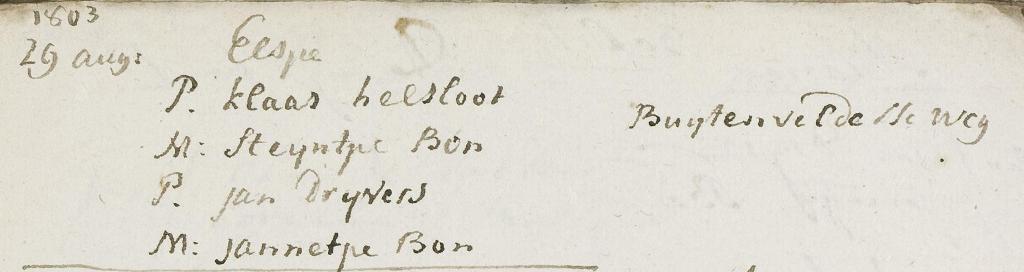 1803
29 aug: Elsje
P. klaas helsloot
Buytenveldesse weg
M: Steyntje Bon
P. jan Dryvers
M: jannetje Bon